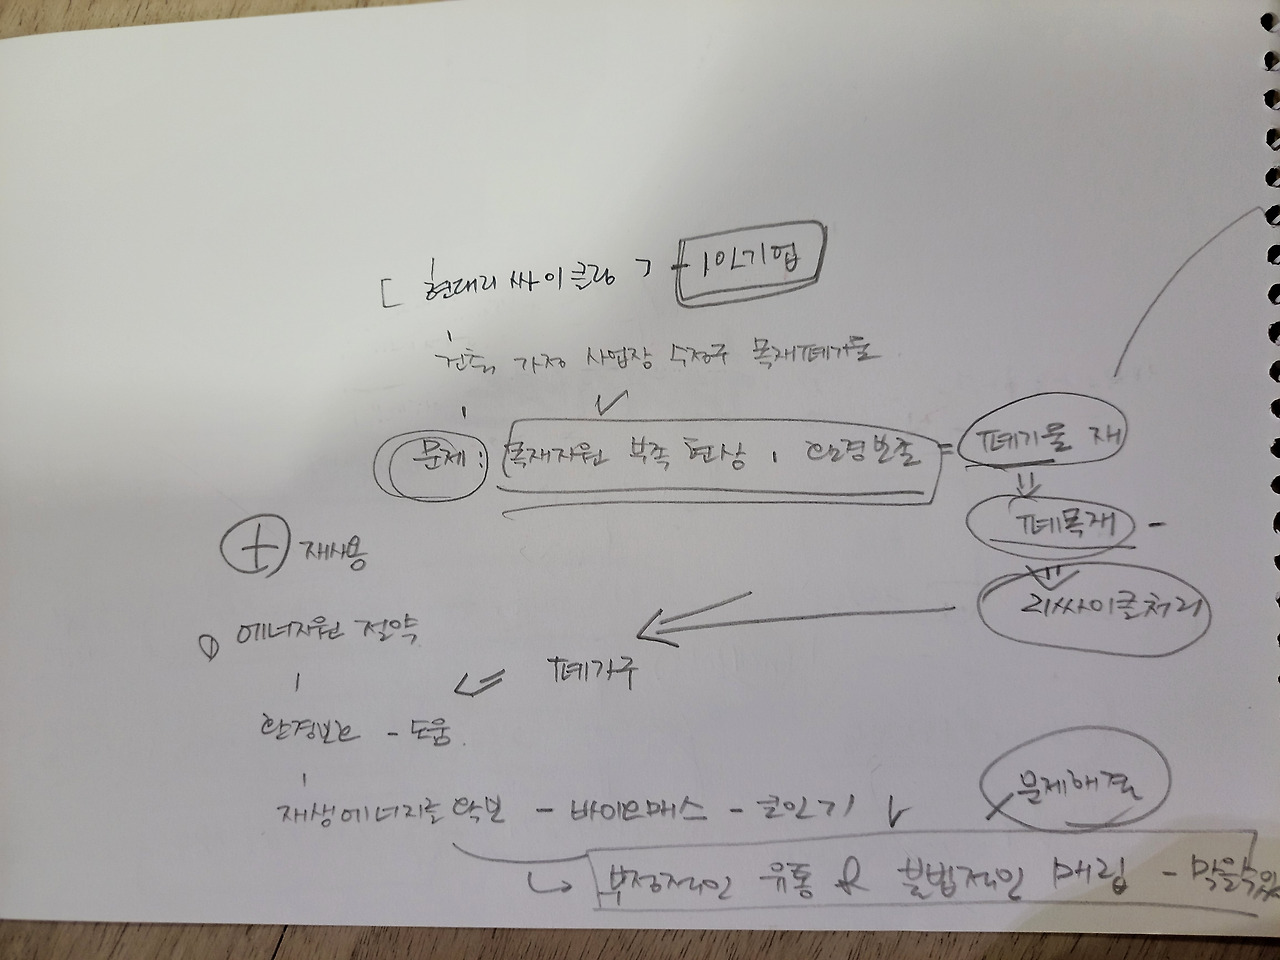 [ 현대리싸이클링 ㄱ - 1인기업
건축, 가정 사업장 수정구 목재폐기물
문제: 목재자원 부족 현상, 환경보존 = 폐기물 재
폐목재 -
+ 재사용
리싸이클처리
에너자원 절약
폐가구
환경보존 - 도움.
문제해결
재생에너지로 확보 - 바이오매스 - 큰인기
부정적인 유통 & 불법적인 매립 - 막을수있